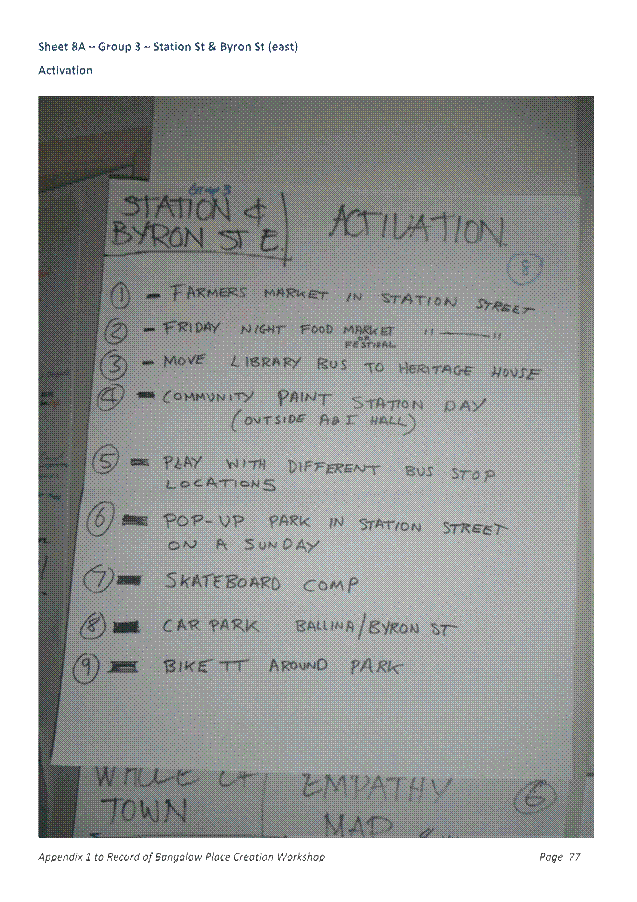 Sheet 8A ~ Group 3 ~ Station St & Byron St (east)
Activation
Group 3
STATION &
BYRON ST E
ACTIVATION
8
① - FARMERS MARKET IN STATION STREET
② - FRIDAY NIGHT FOOD MARKET " ——— "
OR
FESTIVAL
③ - MOVE LIBRARY BUS TO HERITAGE HOUSE
④ - COMMUNITY PAINT STATION DAY
(OUTSIDE A&I HALL)
⑤ - PLAY WITH DIFFERENT BUS STOP
LOCATIONS
⑥ - POP-UP PARK IN STATION STREET
ON A SUNDAY
⑦ - SKATEBOARD COMP
⑧ - CAR PARK BALLINA/BYRON ST
⑨ - BIKE TT AROUND PARK
WHOLE OF
TOWN
EMPATHY
MAP
6
Appendix 1 to Record of Bangalow Place Creation Workshop
Page 77